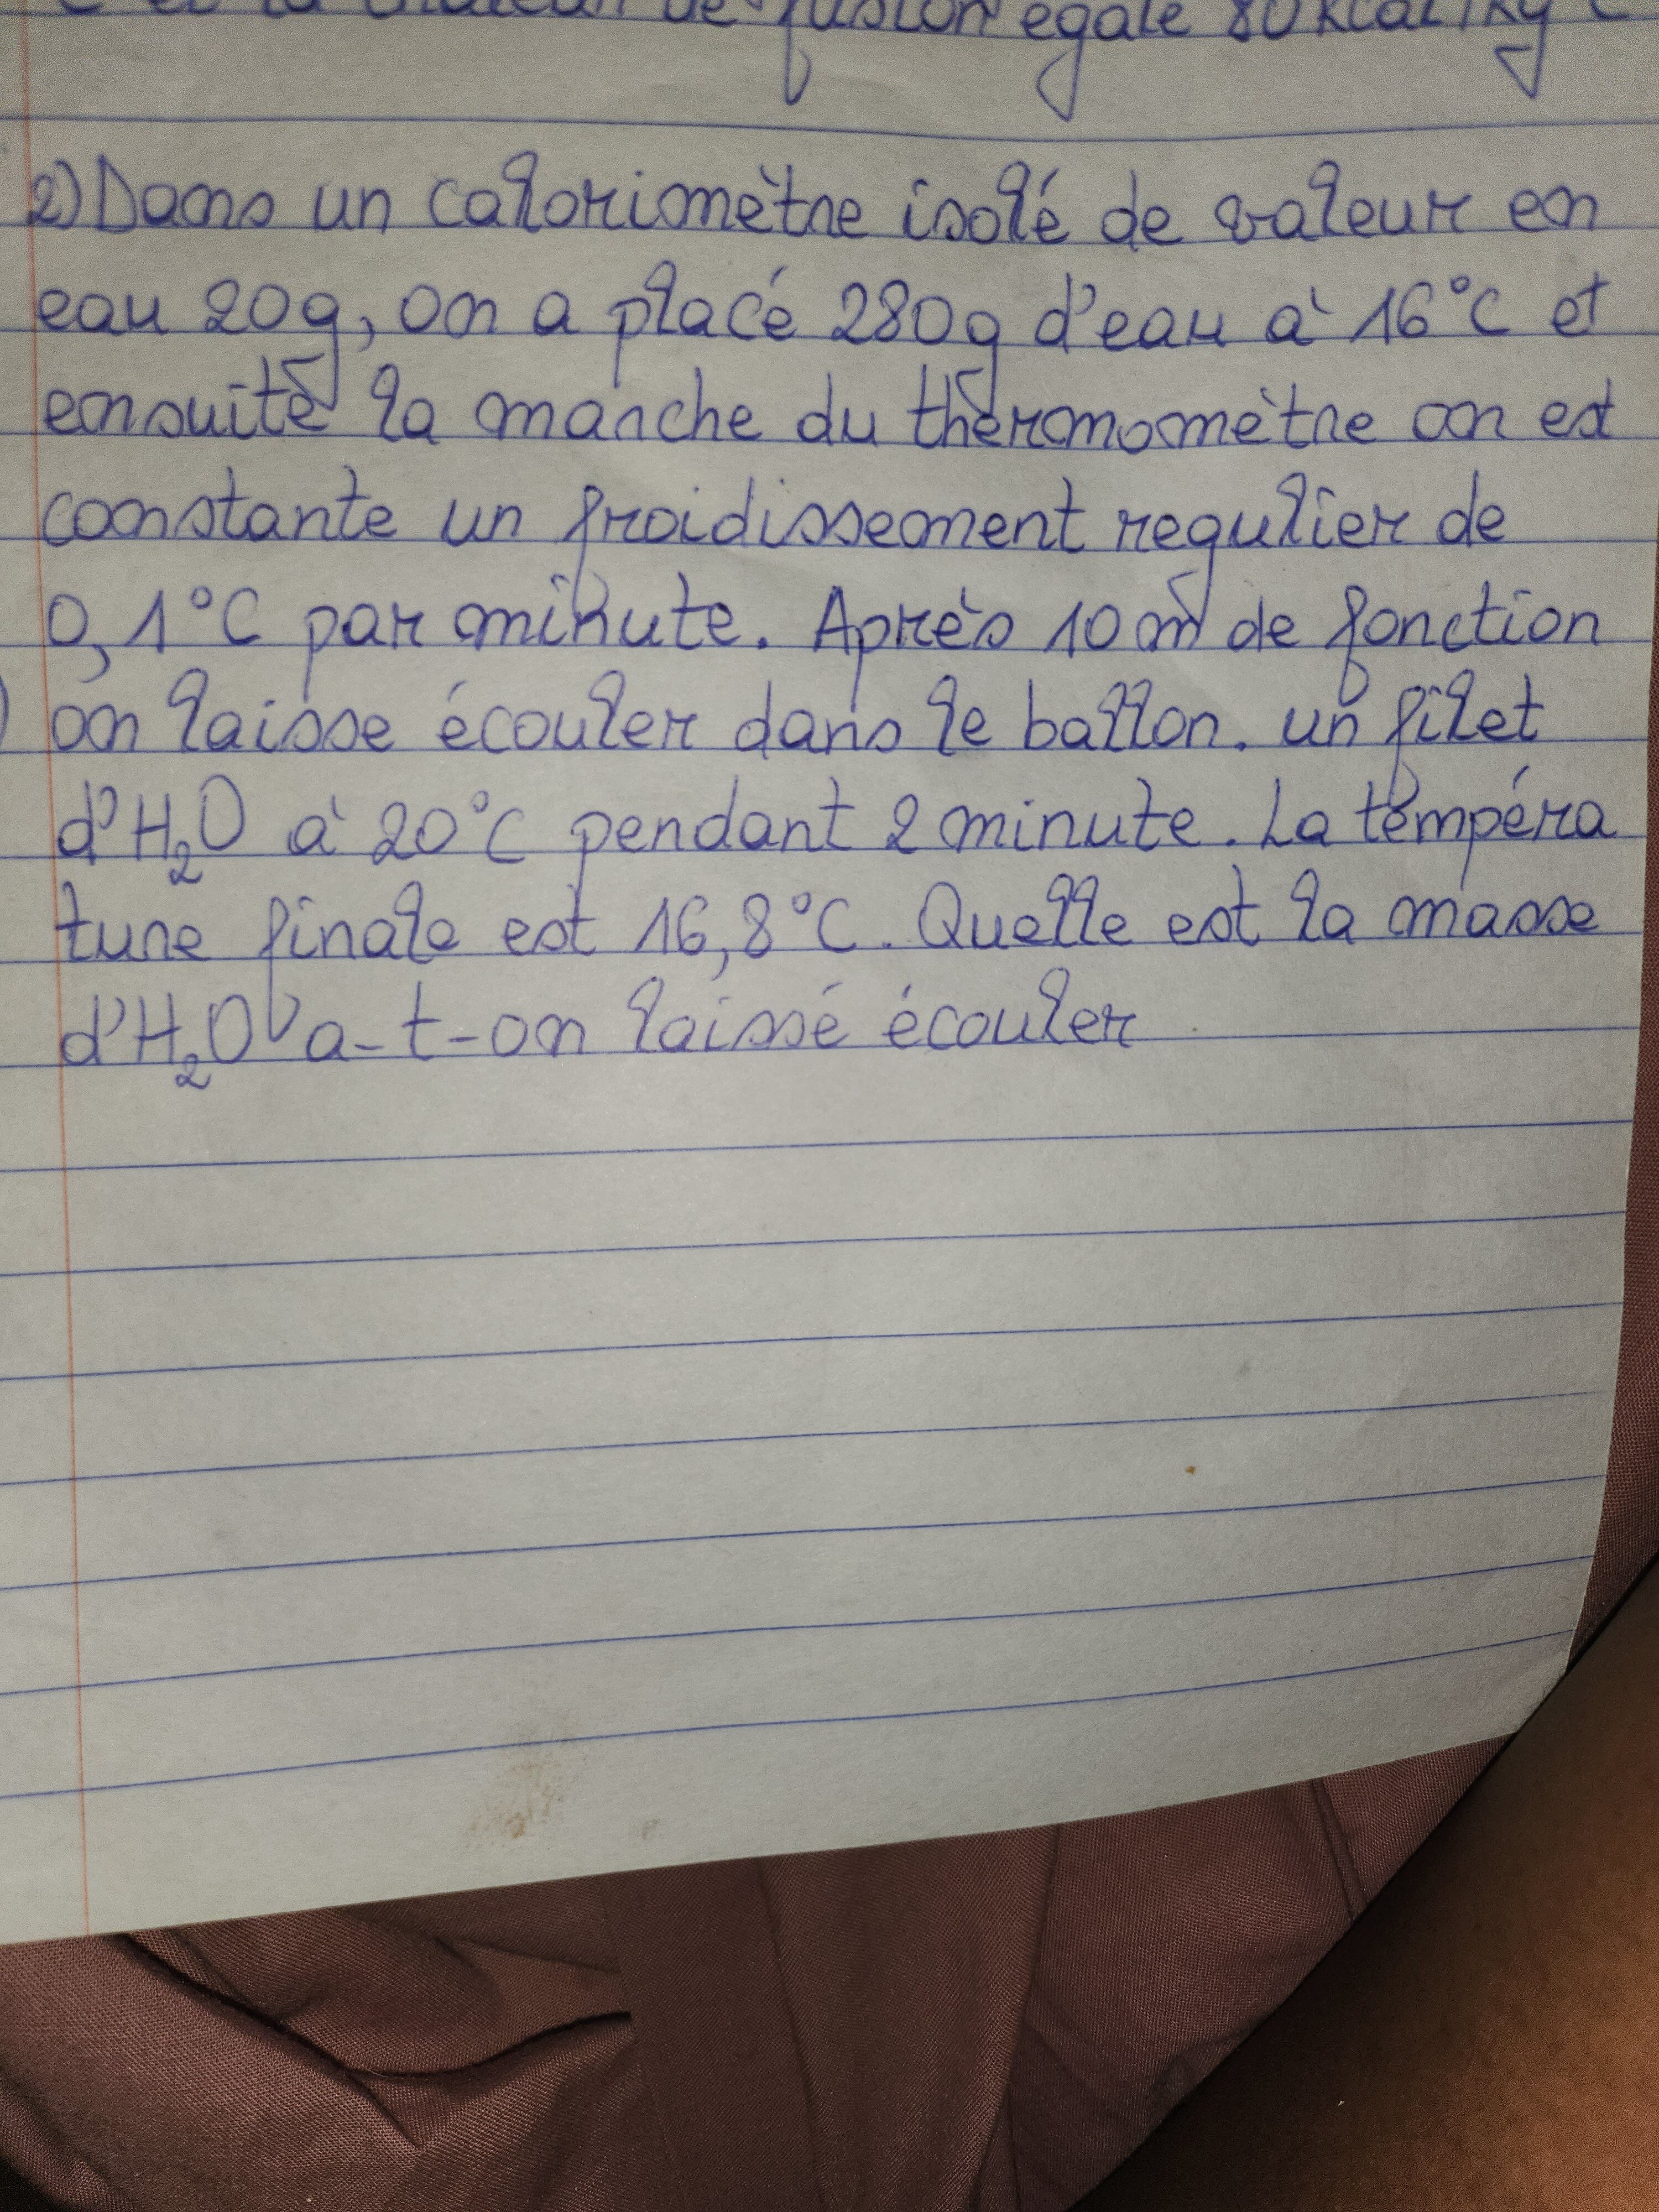 de fusion égale 80 kcal/kg
2) Dans un calorimètre isolé de valeur en
eau 20g, on a placé 280g d'eau à 16°C et
ensuite la marche du thermomètre on est
constante un froidissement regulier de
0,1°C par minute. Après 10 m de fonction
on laisse écouler dans le ballon. un filet
d'H₂O à 20°C pendant 2 minute. La tempéra
ture finale est 16,8°C. Quelle est la masse
d'H₂O a-t-on laissé écouler